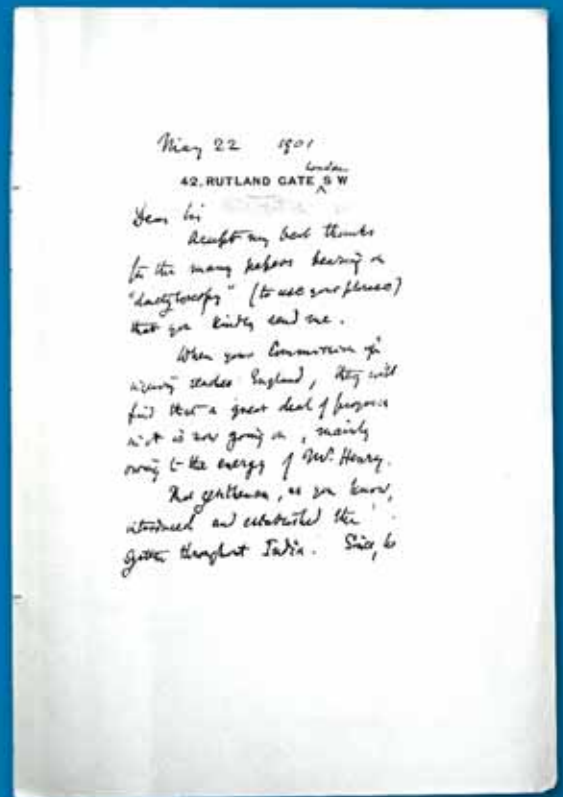 May 22 1901
London
42, RUTLAND GATE S W
Dear Sir
Accept my best thanks
for the many papers bearing on
"dactyloscopy" (to use your phrase)
that you kindly send me.
When your Commission of
inquiry reaches England, they will
find that a great deal of progress
in it is now going on, mainly
owing to the energy of Mr. Henry.
That gentleman, as you know,
introduced and established the
system throughout India. Since, he